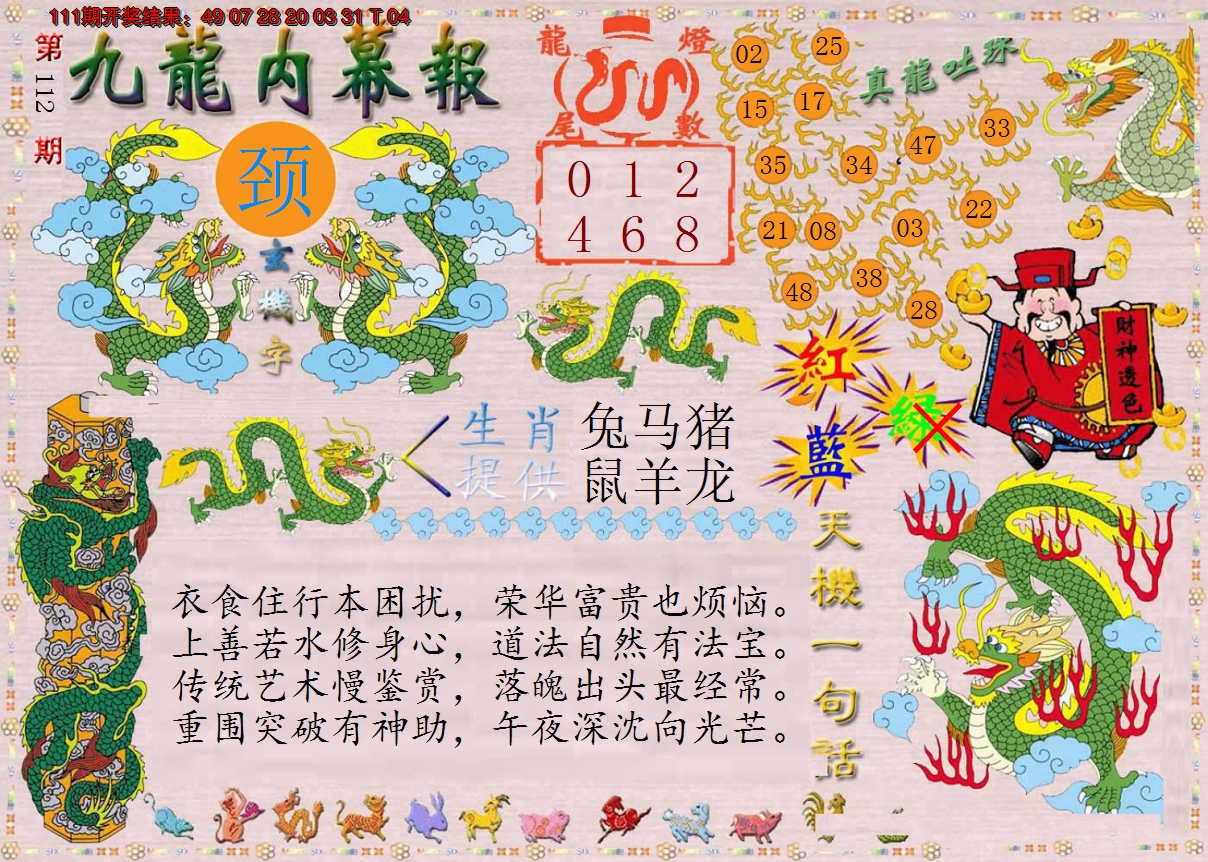 111期开奖结果：49 07 28 20 03 31 T 04
第112期
九龍内幕報
颈
玄機字
龍燈
尾數
0 1 2
4 6 8
真龍吐珠
02
25
15
17
33
47
35
34
22
21
08
03
38
48
28
財神透色
紅
綠
藍
生肖 兔马猪
提供 鼠羊龙
天機一句话
衣食住行本困扰，荣华富贵也烦恼。
上善若水修身心，道法自然有法宝。
传统艺术慢鉴赏，落魄出头最经常。
重围突破有神助，午夜深沈向光芒。